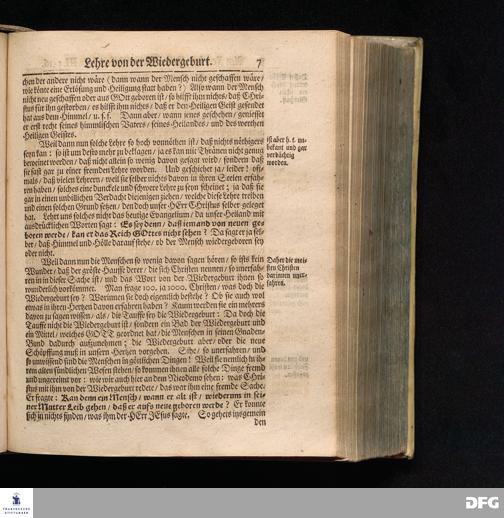 Lehre von der Wiedergeburt. 7
chen der andere nicht wäre (dann wann der Mensch nicht geschaffen wäre/
wie könte eine Erlösung und Heiligung statt haben?) Also wann der Mensch
nicht neu geschaffen oder aus GOtt geboren ist/ so hilfft ihm nichts/ daß Chri-
stus für ihn gestorben/ es hilfft ihm nichts/ daß er den Heiligen Geist gesendet
hat aus dem Himmel/ u. s. f. Dann aber/ wann jenes geschehen/ geniesset
er erst recht seines himmlischen Vaters/ seines Heilandes/ und des werthen
Heiligen Geistes.
Weil dann nun solche Lehre so hoch vonnöthen ist/ daß nichts nöthigers
seyn kan: so ist um desto mehr zu beklagen/ ja es kan mit Thränen nicht genug
beweinet werden/ daß nicht allein so wenig davon gesagt wird/ sondern daß
sie fast gar zu einer fremden Lehre worden. Und geschiehet ja/ leider! oft-
mals/ daß vielen Lehrern/ weil sie selber nichts davon in ihren Seelen erfah-
ren haben/ solches eine dunckele und schwere Lehre zu seyn scheinet; ja daß sie
gar in einen unbillichen Verdacht diejenigen ziehen/ welche diese Lehre treiben
und einen solchen Grund setzen/ den doch unser HErr Christus selber geleget
hat. Lehrt uns solches nicht das heutige Evangelium/ da unser Heiland mit
ausdrücklichen Worten sagt: Es sey denn/ daß iemand von neuen ge-
boren werde/ kan er das Reich GOttes nicht sehen? Da sagt er ja sel-
ber/ daß Himmel und Hölle darauf stehe/ ob der Mensch wiedergeboren sey
oder nicht.
ist aber h. t. un-
bekant und gar
verdächtig
worden.
Weil dann nun die Menschen so wenig davon sagen hören/ so ists kein
Wunder/ daß der gröste Hauffe derer/ die sich Christen nennen/ so unerfah-
ren in dieser Sache ist/ und das Wort von der Wiedergeburt ihnen so
wunderlich vorkömmet. Man frage 100. ja 1000. Christen/ was doch die
Wiedergeburt sey? Worinnen sie doch eigentlich bestehe? Ob sie auch wol
etwas in ihren Hertzen davon erfahren haben? Kaum werden sie ein mehrers
davon zu sagen wissen/ als/ die Tauffe sey die Wiedergeburt: Da doch die
Tauffe nicht die Wiedergeburt ist/ sondern ein Bad der Wiedergeburt und
ein Mittel/ welches GOTT geordnet hat/ die Menschen in seinen Gnaden-
Bund dadurch aufzunehmen; die Wiedergeburt aber/ oder die neue
Schöpffung muß in unsern Hertzen vorgehen. Sihe/ so unerfahren/ und
so unwissend sind die Menschen in göttlichen Dingen! Weil sie nemlich in ih-
rem alten sündlichen Wesen stehen/ so kommen ihnen alle solche Dinge fremd
und ungereimt vor: wie wir auch hier an dem Nicodemo sehen: was Chri-
stus mit ihm von der Wiedergeburt redete/ das war ihm eine fremde Sache.
Er fragte: Kan denn ein Mensch/ wann er alt ist/ wiederum in sei-
ner Mutter Leib gehen/ daß er aufs neue geboren werde? Er konte
sich in nichts finden/ was ihm der HErr JEsus sagte. So gehets insgemein
den
Daher die mei-
sten Christen
darinnen uner-
fahren.
FRANCKESCHE
STIFTUNGEN
DFG